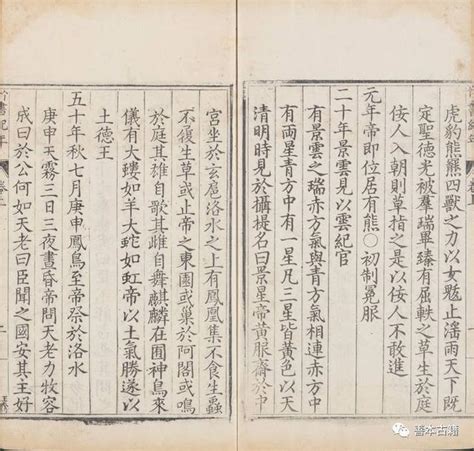 虎豹熊羆四獸之力以女魃止淫雨天下既
定聖德光被羣瑞畢臻有屈軼之草生於庭
佞人入朝則草指之是以佞人不敢進
元年帝即位居有熊〇初制冕服
二十年景雲見以雲紀官
有景雲之瑞赤方氣與青方氣相連赤方中
有兩星青方中有一星凡三星皆黃色以天
清明時見於攝提名曰景星帝黃服齋於中
宮坐於玄扈洛水之上有鳳凰集不食生蟲
不履生草或止帝之東園或巢於阿閣或鳴
於庭其雄自歌其雌自舞麒麟在囿神鳥來
儀有大螻如羊大螾如虹帝以土氣勝遂以
土德王
五十年秋七月庚申鳳鳥至帝祭於洛水
庚申天霧三日三夜晝昏帝問天老力牧容
成曰於公何如天老曰臣聞之國安其主好
竹書紀年
卷上
二
善本古籍